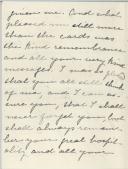 from me. And what
pleased me still more
than the cards was
the kind remembrance
and all your very kind
thoughts. I was so glad
that you all did think
of me, and I can as-
sure you, that I shall
never forget you, but
shall always remem-
ber your great hospit-
ality and all your